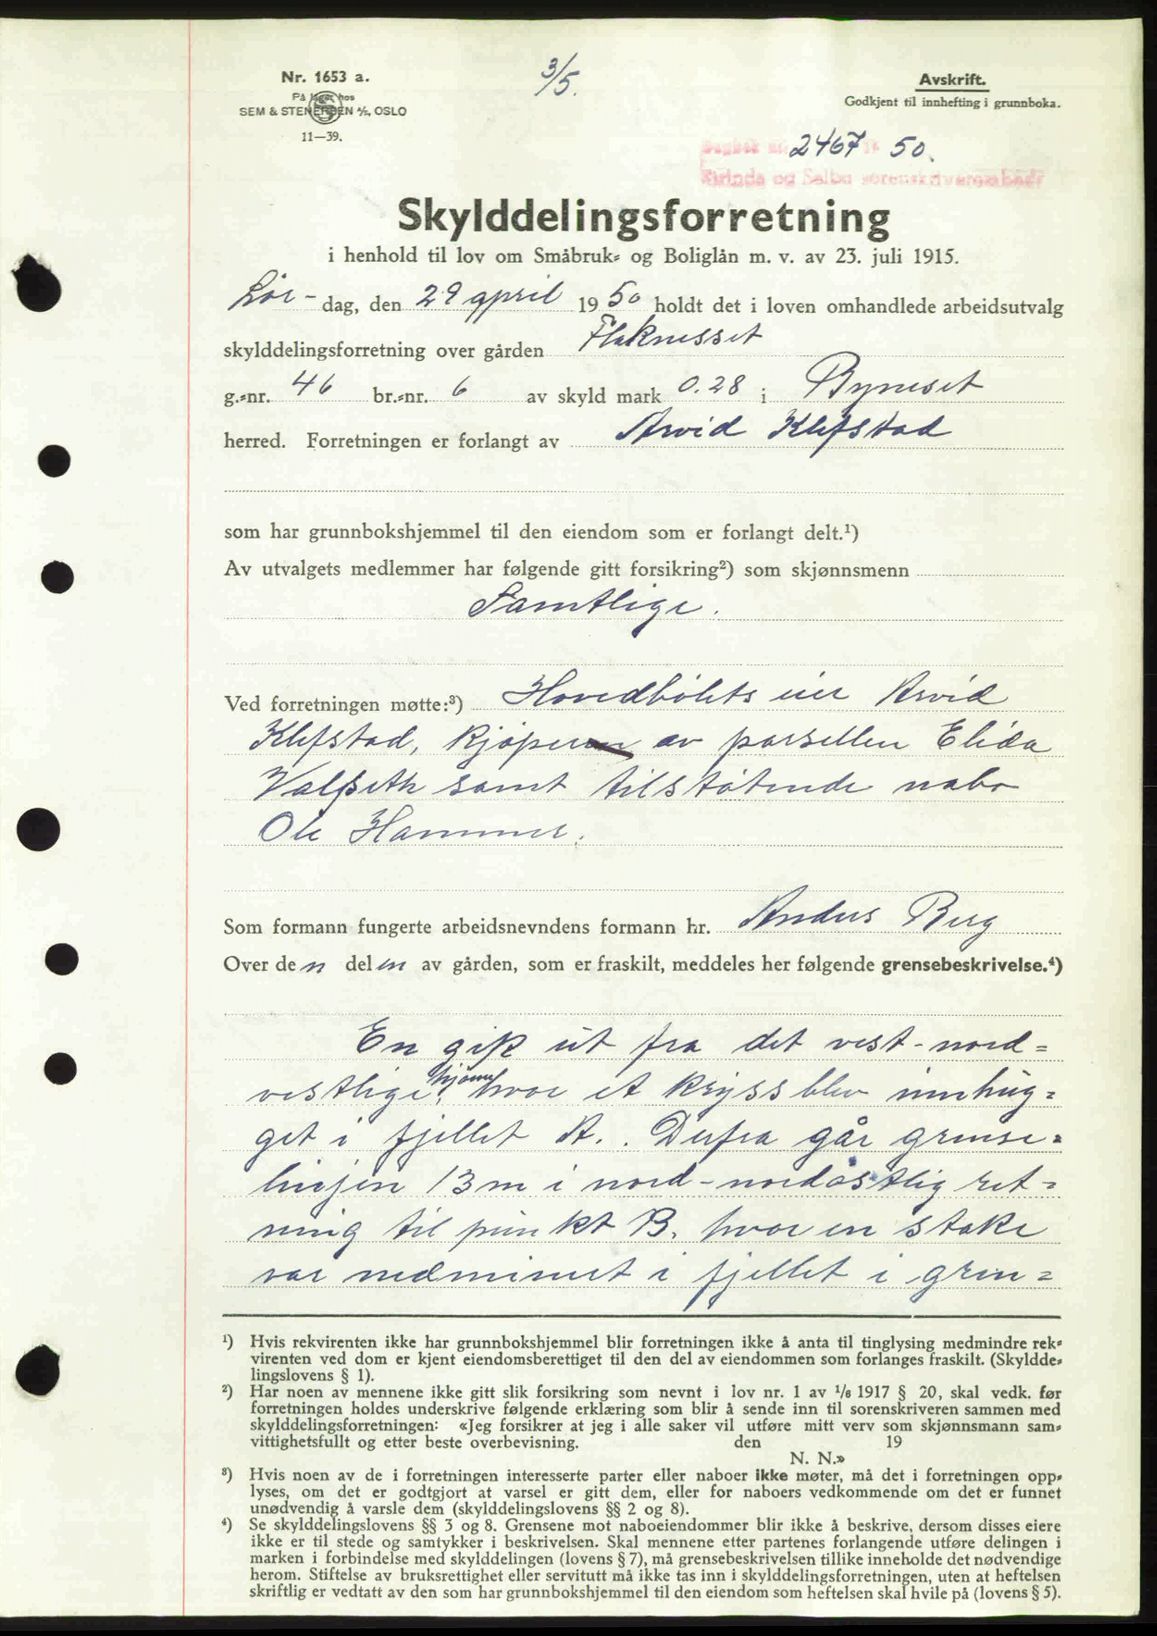 Nr. 1653 a.
På lager hos
SEM & STENERSEN A/S, OSLO
11—39.
3/5.
Avskrift.
Godkjent til innhefting i grunnboka.
Dagbok nr. 2467 19 50.
Strinda og Selbu sorenskriverembede
Skylddelingsforretning
i henhold til lov om Småbruk- og Boliglån m. v. av 23. juli 1915.
Lør-dag, den 29 april 1950 holdt det i loven omhandlede arbeidsutvalg
skylddelingsforretning over gården Flaknesset
g.-nr. 46 br.-nr. 6 av skyld mark 0.28 i Byneset
herred. Forretningen er forlangt av Arvid Klefstad
som har grunnbokshjemmel til den eiendom som er forlangt delt.¹)
Av utvalgets medlemmer har følgende gitt forsikring²) som skjønnsmenn
Samtlige.
Ved forretningen møtte:³) Hovedbølets eier Arvid
Klefstad, kjøperen av parsellen Elida
Valseth samt tilstøtende nabo
Ole Hammer.
Som formann fungerte arbeidsnevndens formann hr. Anders Berg
Over den delen av gården, som er fraskilt, meddeles her følgende grensebeskrivelse.⁴)
En gik ut fra det vest-nord=
vestlige hjørne, hvor et kryss blev innhug=
get i fjellet A. Derfra går grense=
linjen 13 m i nord-nordøstlig ret=
ning til punkt B, hvor en stake
var nedminert i fjellet i gren=
¹) Hvis rekvirenten ikke har grunnbokshjemmel blir forretningen ikke å anta til tinglysing medmindre rek-
virenten ved dom er kjent eiendomsberettiget til den del av eiendommen som forlanges fraskilt. (Skyldde-
lingslovens § 1).
²) Har noen av mennene ikke gitt slik forsikring som nevnt i lov nr. 1 av 1/6 1917 § 20, skal vedk. før
forretningen holdes underskrive følgende erklæring som blir å sende inn til sorenskriveren sammen med
skylddelingsforretningen: «Jeg forsikrer at jeg i alle saker vil utføre mitt verv som skjønnsmann sam-
vittighetsfullt og etter beste overbevisning. den 19
N. N.»
³) Hvis noen av de i forretningen interesserte parter eller naboer ikke møter, må det i forretningen opp-
lyses, om det er godtgjort at varsel er gitt dem, eller for naboers vedkommende om det er funnet
unødvendig å varsle dem (skylddelingslovens §§ 2 og 8).
⁴) Se skylddelingslovens §§ 3 og 8. Grensene mot naboeiendommer blir ikke å beskrive, dersom disses eiere
ikke er til stede og samtykker i beskrivelsen. Skal mennene etter partenes forlangende utføre delingen i
marken i forbindelse med skylddelingen (lovens § 7), må grensebeskrivelsen tillike inneholde det nødvendige
herom. Stiftelse av bruksrettighet eller servitutt må ikke tas inn i skylddelingsforretningen, uten at heftelsen
skriftlig er vedtatt av den som har grunnbokshjemmel til den eiendom som heftelsen skal hvile på (lovens § 5).